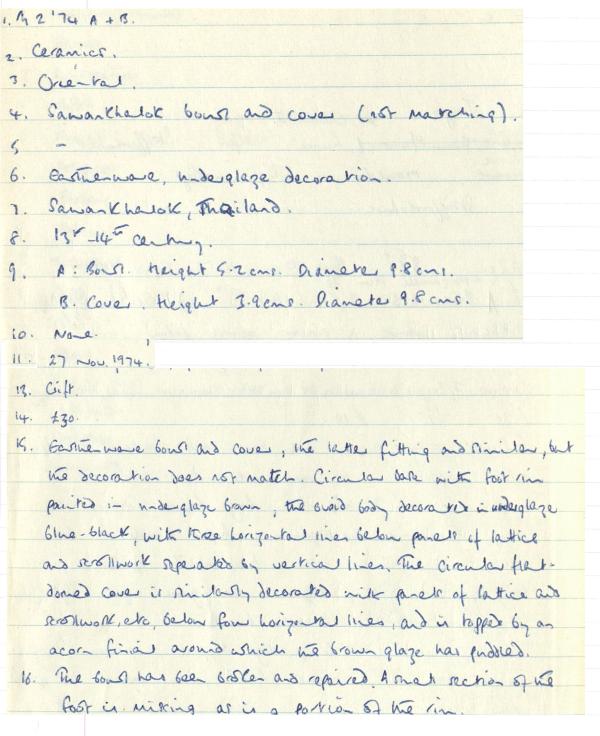 1. M 2 '74 A + B.
2. Ceramics.
3. Oriental.
4. Sawankhalok bowl and cover (not matching).
5 –
6. Earthenware, underglaze decoration.
7. Sawankhalok, Thailand.
8. 13th-14th century.
9. A: Bowl. Height 5.2 cms. Diameter 9.8 cms.
B. Cover. Height 3.9 cms. Diameter 9.8 cms.
10. None.
11. 27 Nov. 1974.
13. Gift.
14. £30.
15. Earthenware bowl and cover, the latter fitting and similar, but
the decoration does not match. Circular base with foot rim
painted in underglaze brown, the ovoid body decorated in underglaze
blue-black, with three horizontal lines below panels of lattice
and scrollwork seperated by vertical lines. The circular flat-
domed cover is similarly decorated with panels of lattice and
scrollwork, etc, below four horizontal lines, and is topped by an
acorn finial around which the brown glaze has puddled.
16. The bowl has been broken and repaired. A small section of the
foot is missing as is a portion of the rim.